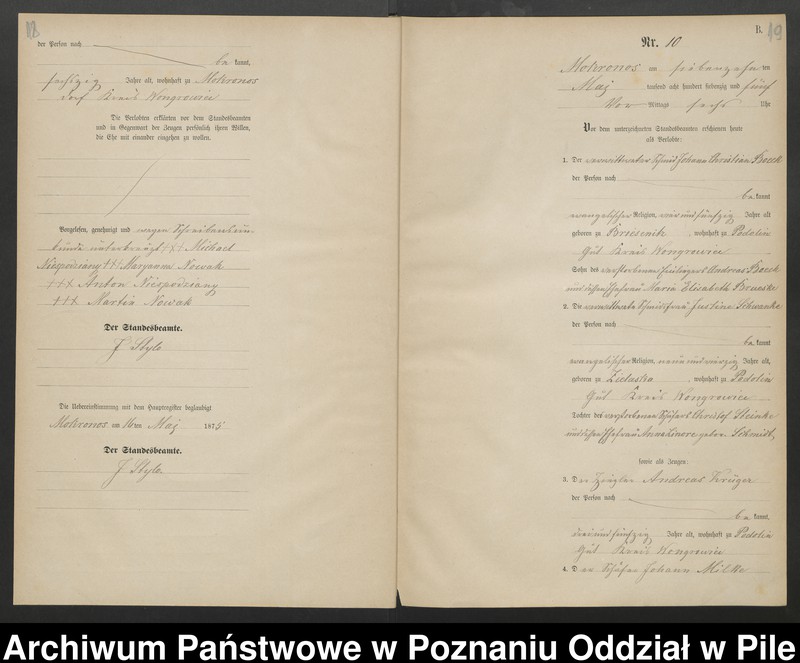 18
der Person nach
be kannt,
sechszig Jahre alt, wohnhaft zu Mokronos
Dorf Kreis Wongrowiec
Die Verlobten erklärten vor dem Standesbeamten
und in Gegenwart der Zeugen persönlich ihren Willen,
die Ehe mit einander eingehen zu wollen.
Vorgelesen, genehmigt und wegen Schreibensun-
kunde unterkreuzt +++ Michael
Niespodziany +++ Maryanna Nowak
+++ Anton Niespodziany
+++ Martin Nowak
Der Standesbeamte.
J Stylo
Die Uebereinstimmung mit dem Hauptregister beglaubigt
Mokronos am 16ten Maj 1875
Der Standesbeamte.
J Stylo
B. 19
Nr. 10
Mokronos am siebenzehn ten
Maj tausend acht hundert siebenzig und fünf
Vor Mittags sechs Uhr
Vor dem unterzeichneten Standesbeamten erschienen heute
als Verlobte:
1. Der verwittweter Schmid Johann Christian Boeck
der Person nach
be kannt
evangelischer Religion, vier und fünfzig Jahre alt
geboren zu Briesenik, wohnhaft zu Podolin
Gut Kreis Wongrowiec
Sohn des verstorbenen Andreas Boeck
und dessen Ehefrau Maria Elisabeth
2. Die verwittwete Schmidfrau Justine Schwanke
der Person nach
be kannt
evangelischer Religion, neun und vierzig Jahre alt,
geboren zu Zelaska, wohnhaft zu Podolin
Gut Kreis Wongrowiec
Tochter des verstorbenen Schäfers Christof Steinke
und dessen Ehefrau Anna Linore gebor. Schmidt,
sowie als Zeugen:
3. Der Ziegler Andreas Krüger
der Person nach
be kannt,
drei und fünfzig Jahre alt, wohnhaft zu Podolin
Gut Kreis Wongrowiec
4. Der Schäfer Johann Milke
Archiwum Państwowe w Poznaniu Oddział w Pile